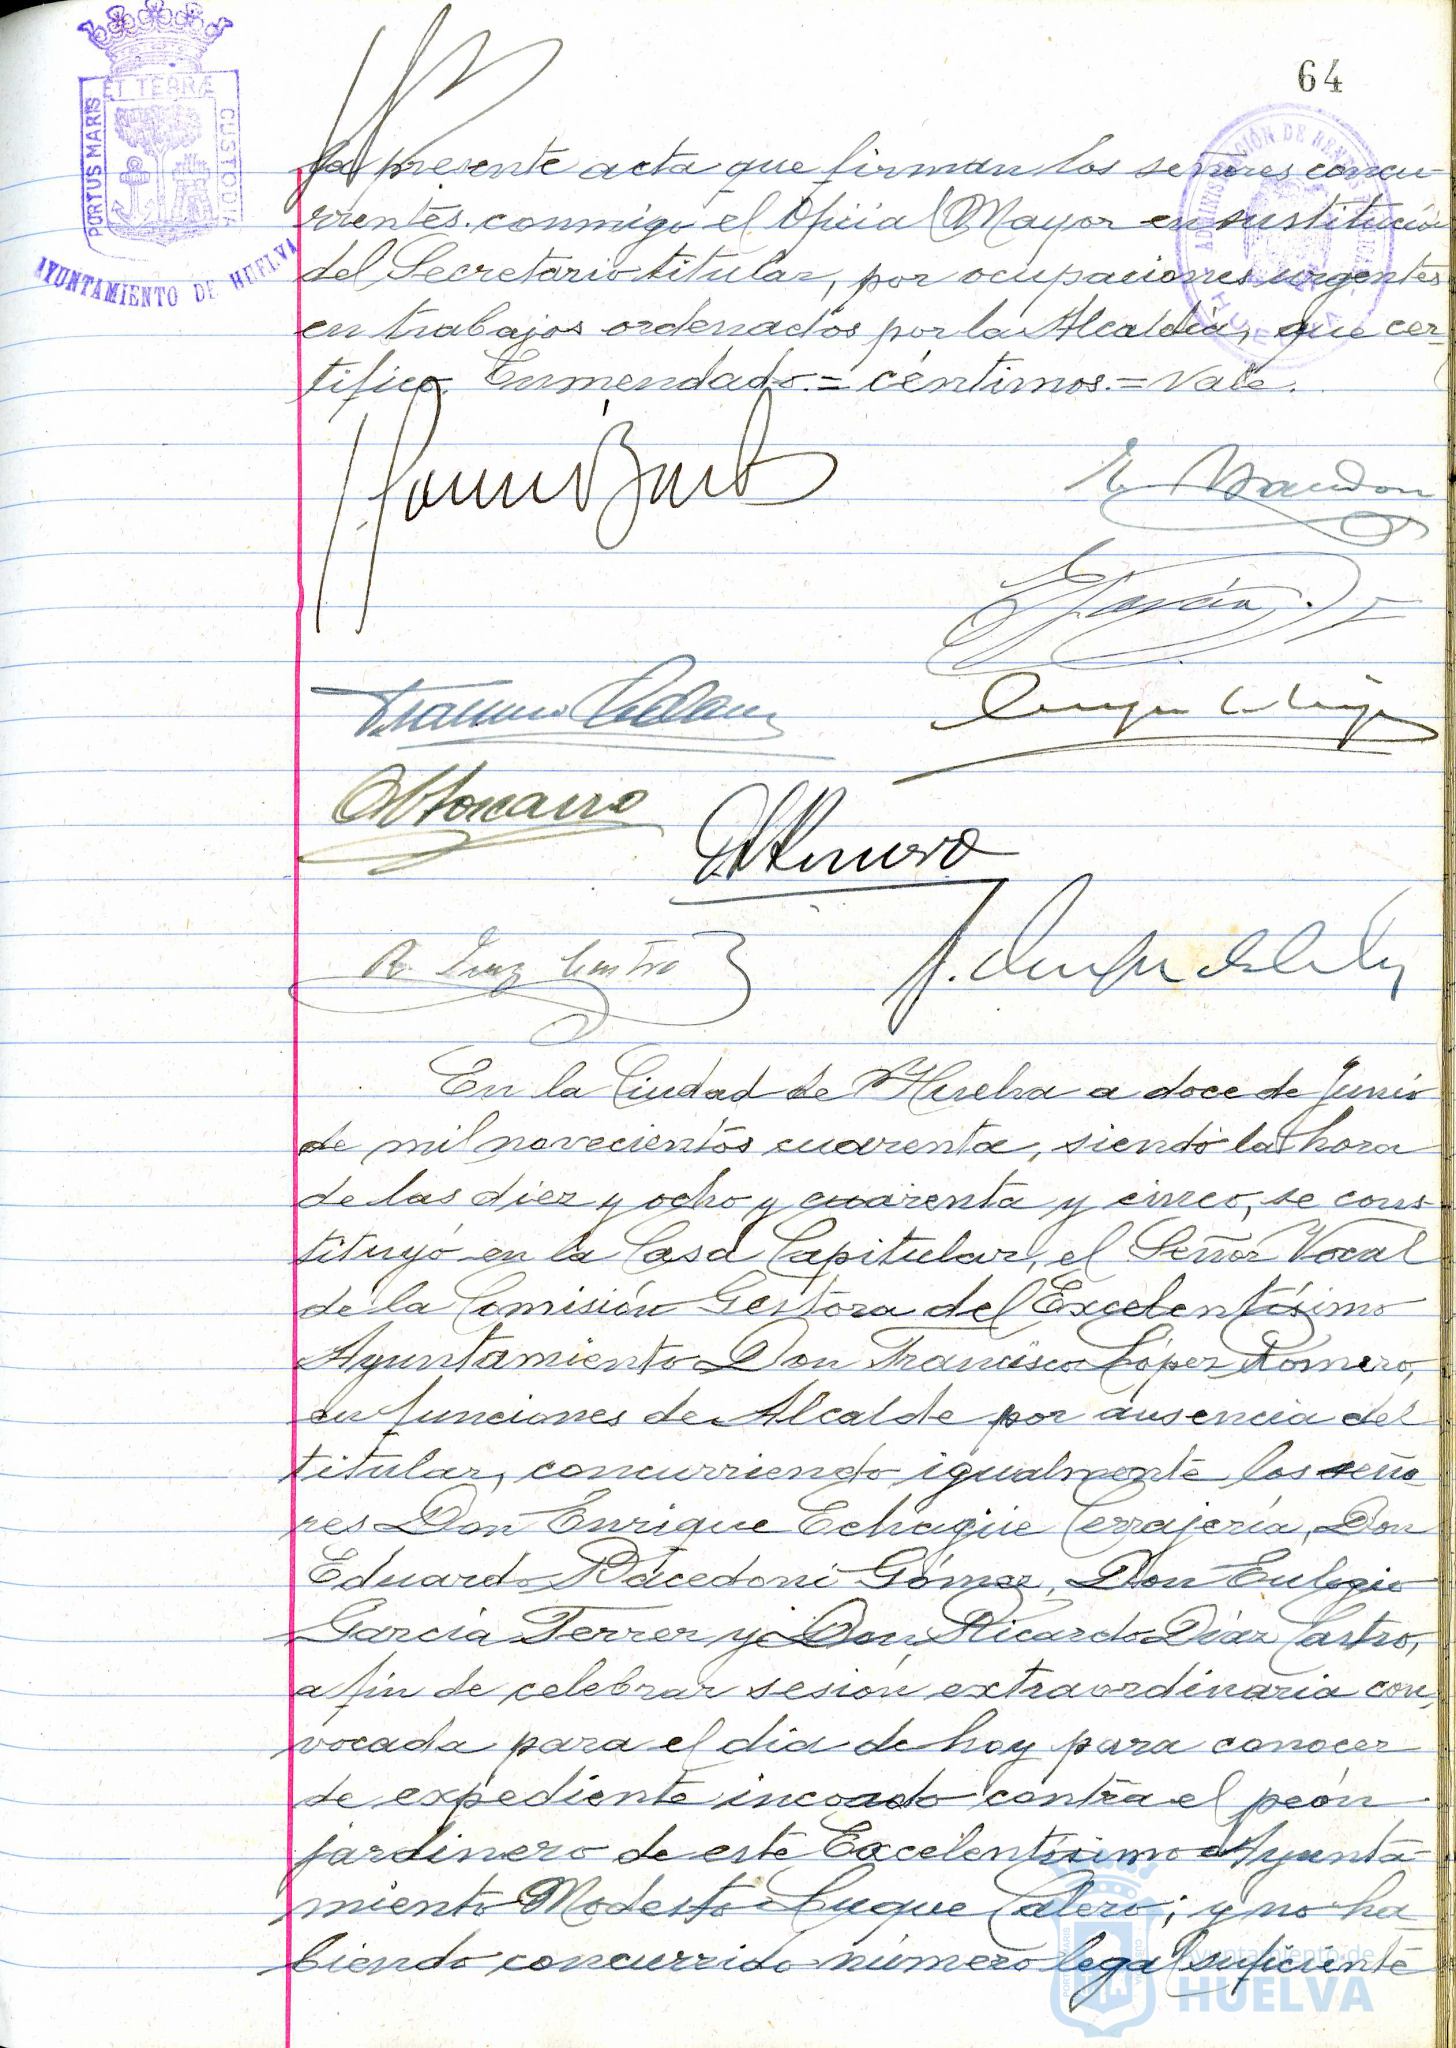 64
PORTUS MARIS ET TERRÆ CUSTODIA
AYUNTAMIENTO DE HUELVA
ADMINISTRACIÓN DE
HUELVA
la presente acta que firman los señores concu-
rrentes conmigo el Oficial Mayor en sustitución
del Secretario titular, por ocupaciones urgentes
en trabajos ordenados por la Alcaldía, que cer-
tifico. Enmendado.=céntimos.=Vale.
R. Díaz Castro
En la Ciudad de Huelva a doce de Junio
de mil novecientos cuarenta, siendo la hora
de las diez y ocho y cuarenta y cinco, se cons-
tituyó en la Casa Capitular, el Señor Vocal
de la Comisión Gestora del Excelentísimo
Ayuntamiento Don Francisco López Romero,
en funciones de Alcalde por ausencia del
titular, concurriendo igualmente los seño-
res Don Enrique Echagüe Cerrajería, Don
Eduardo Macedoni Gómez, Don Eulogio
García Ferrer y Don Ricardo Díaz Castro,
a fin de celebrar sesión extraordinaria con-
vocada para el día de hoy para conocer
de expediente incoado contra el peón
jardinero de este Excelentísimo Ayunta-
miento Modesto Luque Calero; y no ha-
biendo concurrido número legal suficiente
Ayuntamiento de
HUELVA